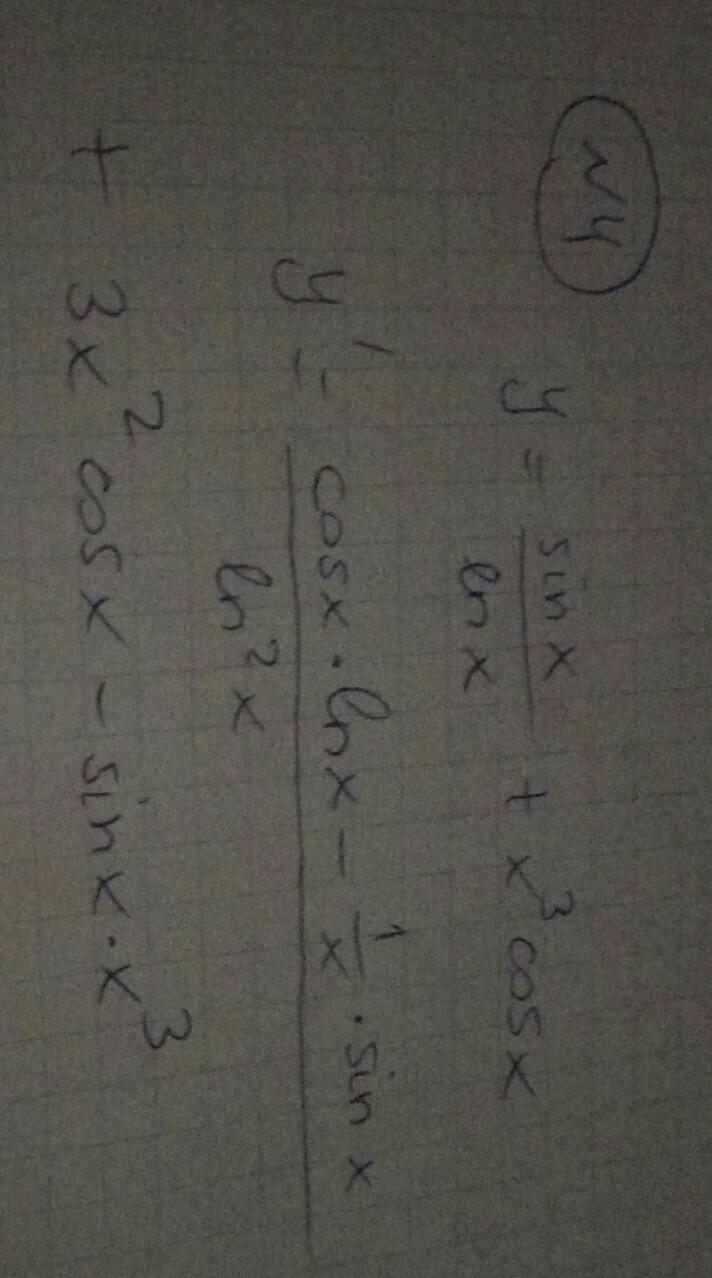 N4
y = sin x / ln x + x³ cos x
y' = cos x · ln x - 1/x · sin x / ln² x
+ 3x² cos x - sin x · x³